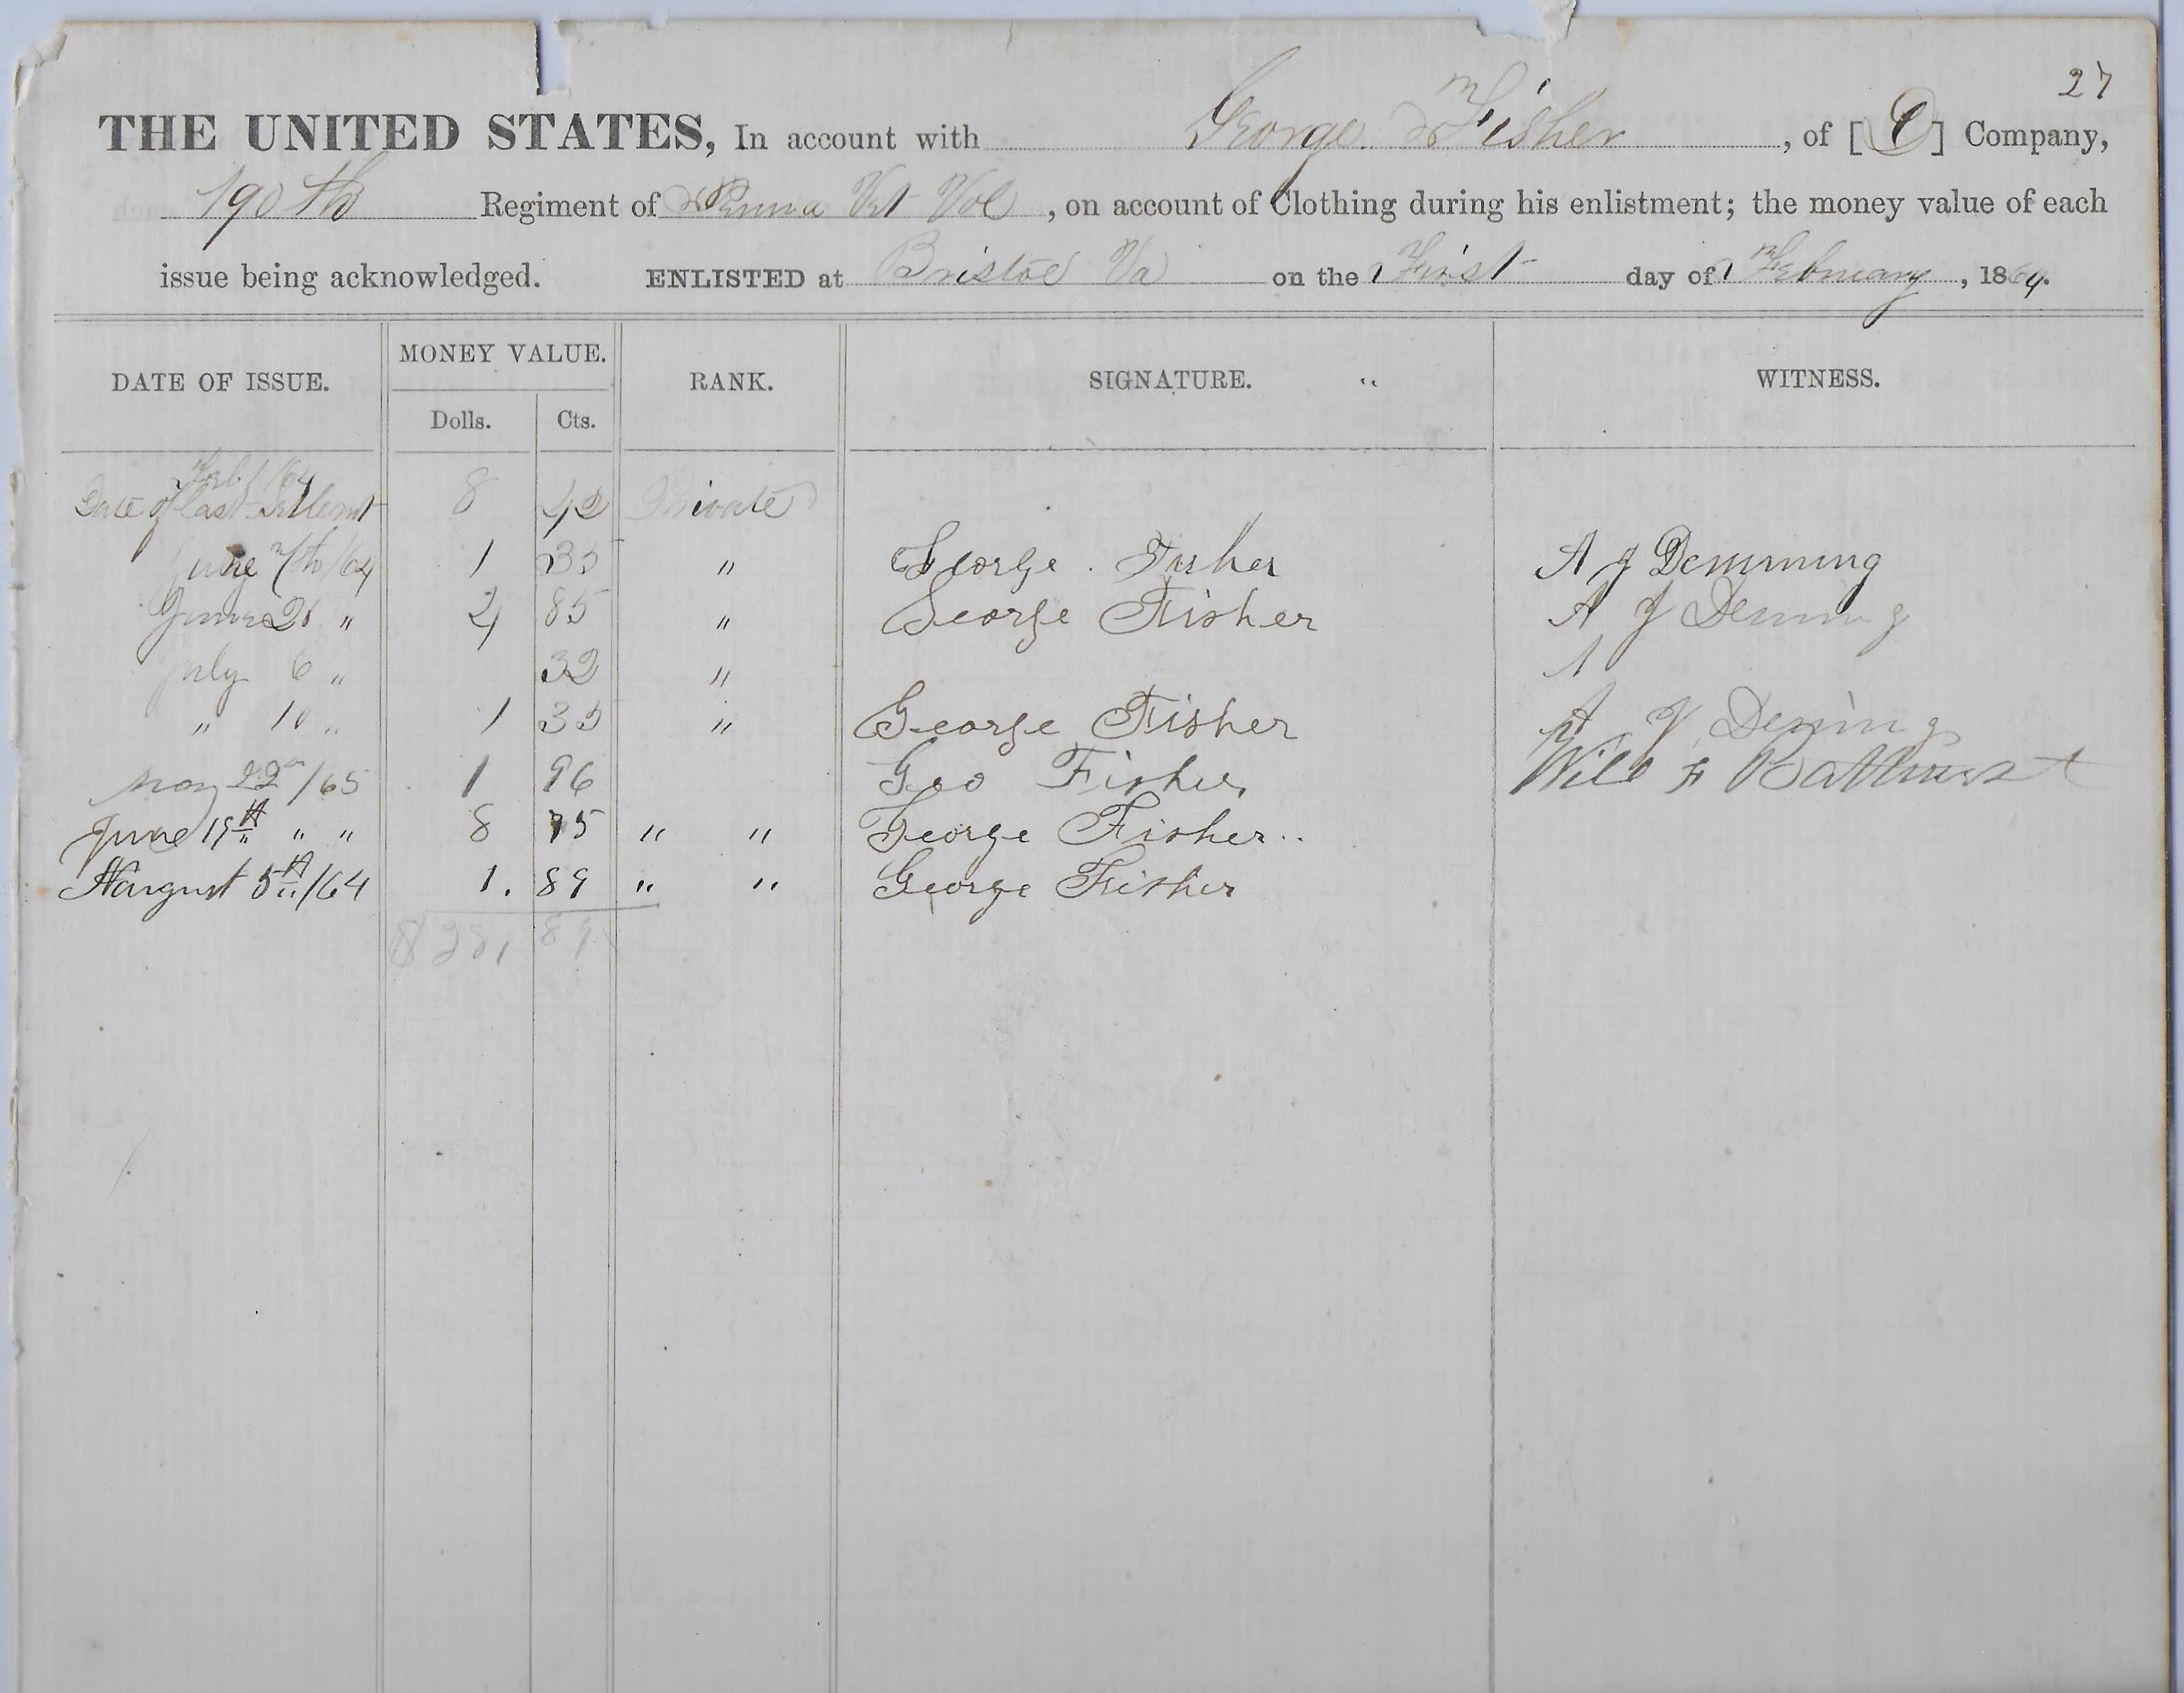 27
THE UNITED STATES, In account with George Fisher, of [D] Company,
190th Regiment of Penna Vet Vol, on account of Clothing during his enlistment; the money value of each
issue being acknowledged. ENLISTED at Bristoe Va on the First day of February, 1864.
DATE OF ISSUE. MONEY VALUE. RANK. SIGNATURE. WITNESS.
Dolls. Cts.
Feb 1/64
Date of last Settlemt 8 42 Private
June 7th/64 1 35 " George Fisher A J Demming
June 20 " 4 85 " George Fisher A J Deming
July 6 " 32 "
" 10 " 1 35 " George Fisher A J Deming
May 22"/65 1 96 Geo Fisher Will F Bathurst
June 19th " " 8 75 " " George Fisher
August 5th/64 1. 89 " " George Fisher
89